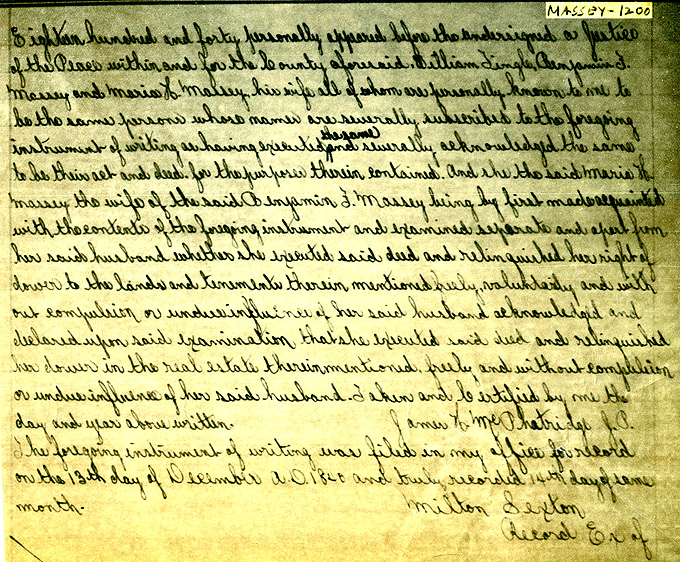 MASSEY-1200
Eighteen hundred and forty personally appeared before the undersigned a Justice
of the Peace within and for the County aforesaid. William Tingle, Benjamin F.
Massey and Maria H. Massey, his wife all of whom are personally known to me to
be the same persons whose names are severally subscribed to the foregoing
instrument of writing as having executed the same and severally acknowledged the same
to be their act and deed for the purposes therein contained. And she the said Maria H.
Massey the wife of the said Benjamin F. Massey being by first made acquainted
with the contents of the foregoing instrument and examined separate and apart from
her said husband whether she executed said deed and relinquished her right of
dower to the lands and tenements therein mentioned freely, voluntarily and with
out compulsion or undue influence of her said husband acknowledged and
declared upon said examination that she executed said deed and relinquished
her dower in the real estate therein mentioned, freely and without compulsion
or undue influence of her said husband. Taken and Certified by me the
day and year above written. James H. McPhatridge J.P.
The foregoing instrument of writing was filed in my office for record
on the 13th day of December A.D. 1840 and truly recorded 14th day of same
month. Milton Sexton
Record Ex of